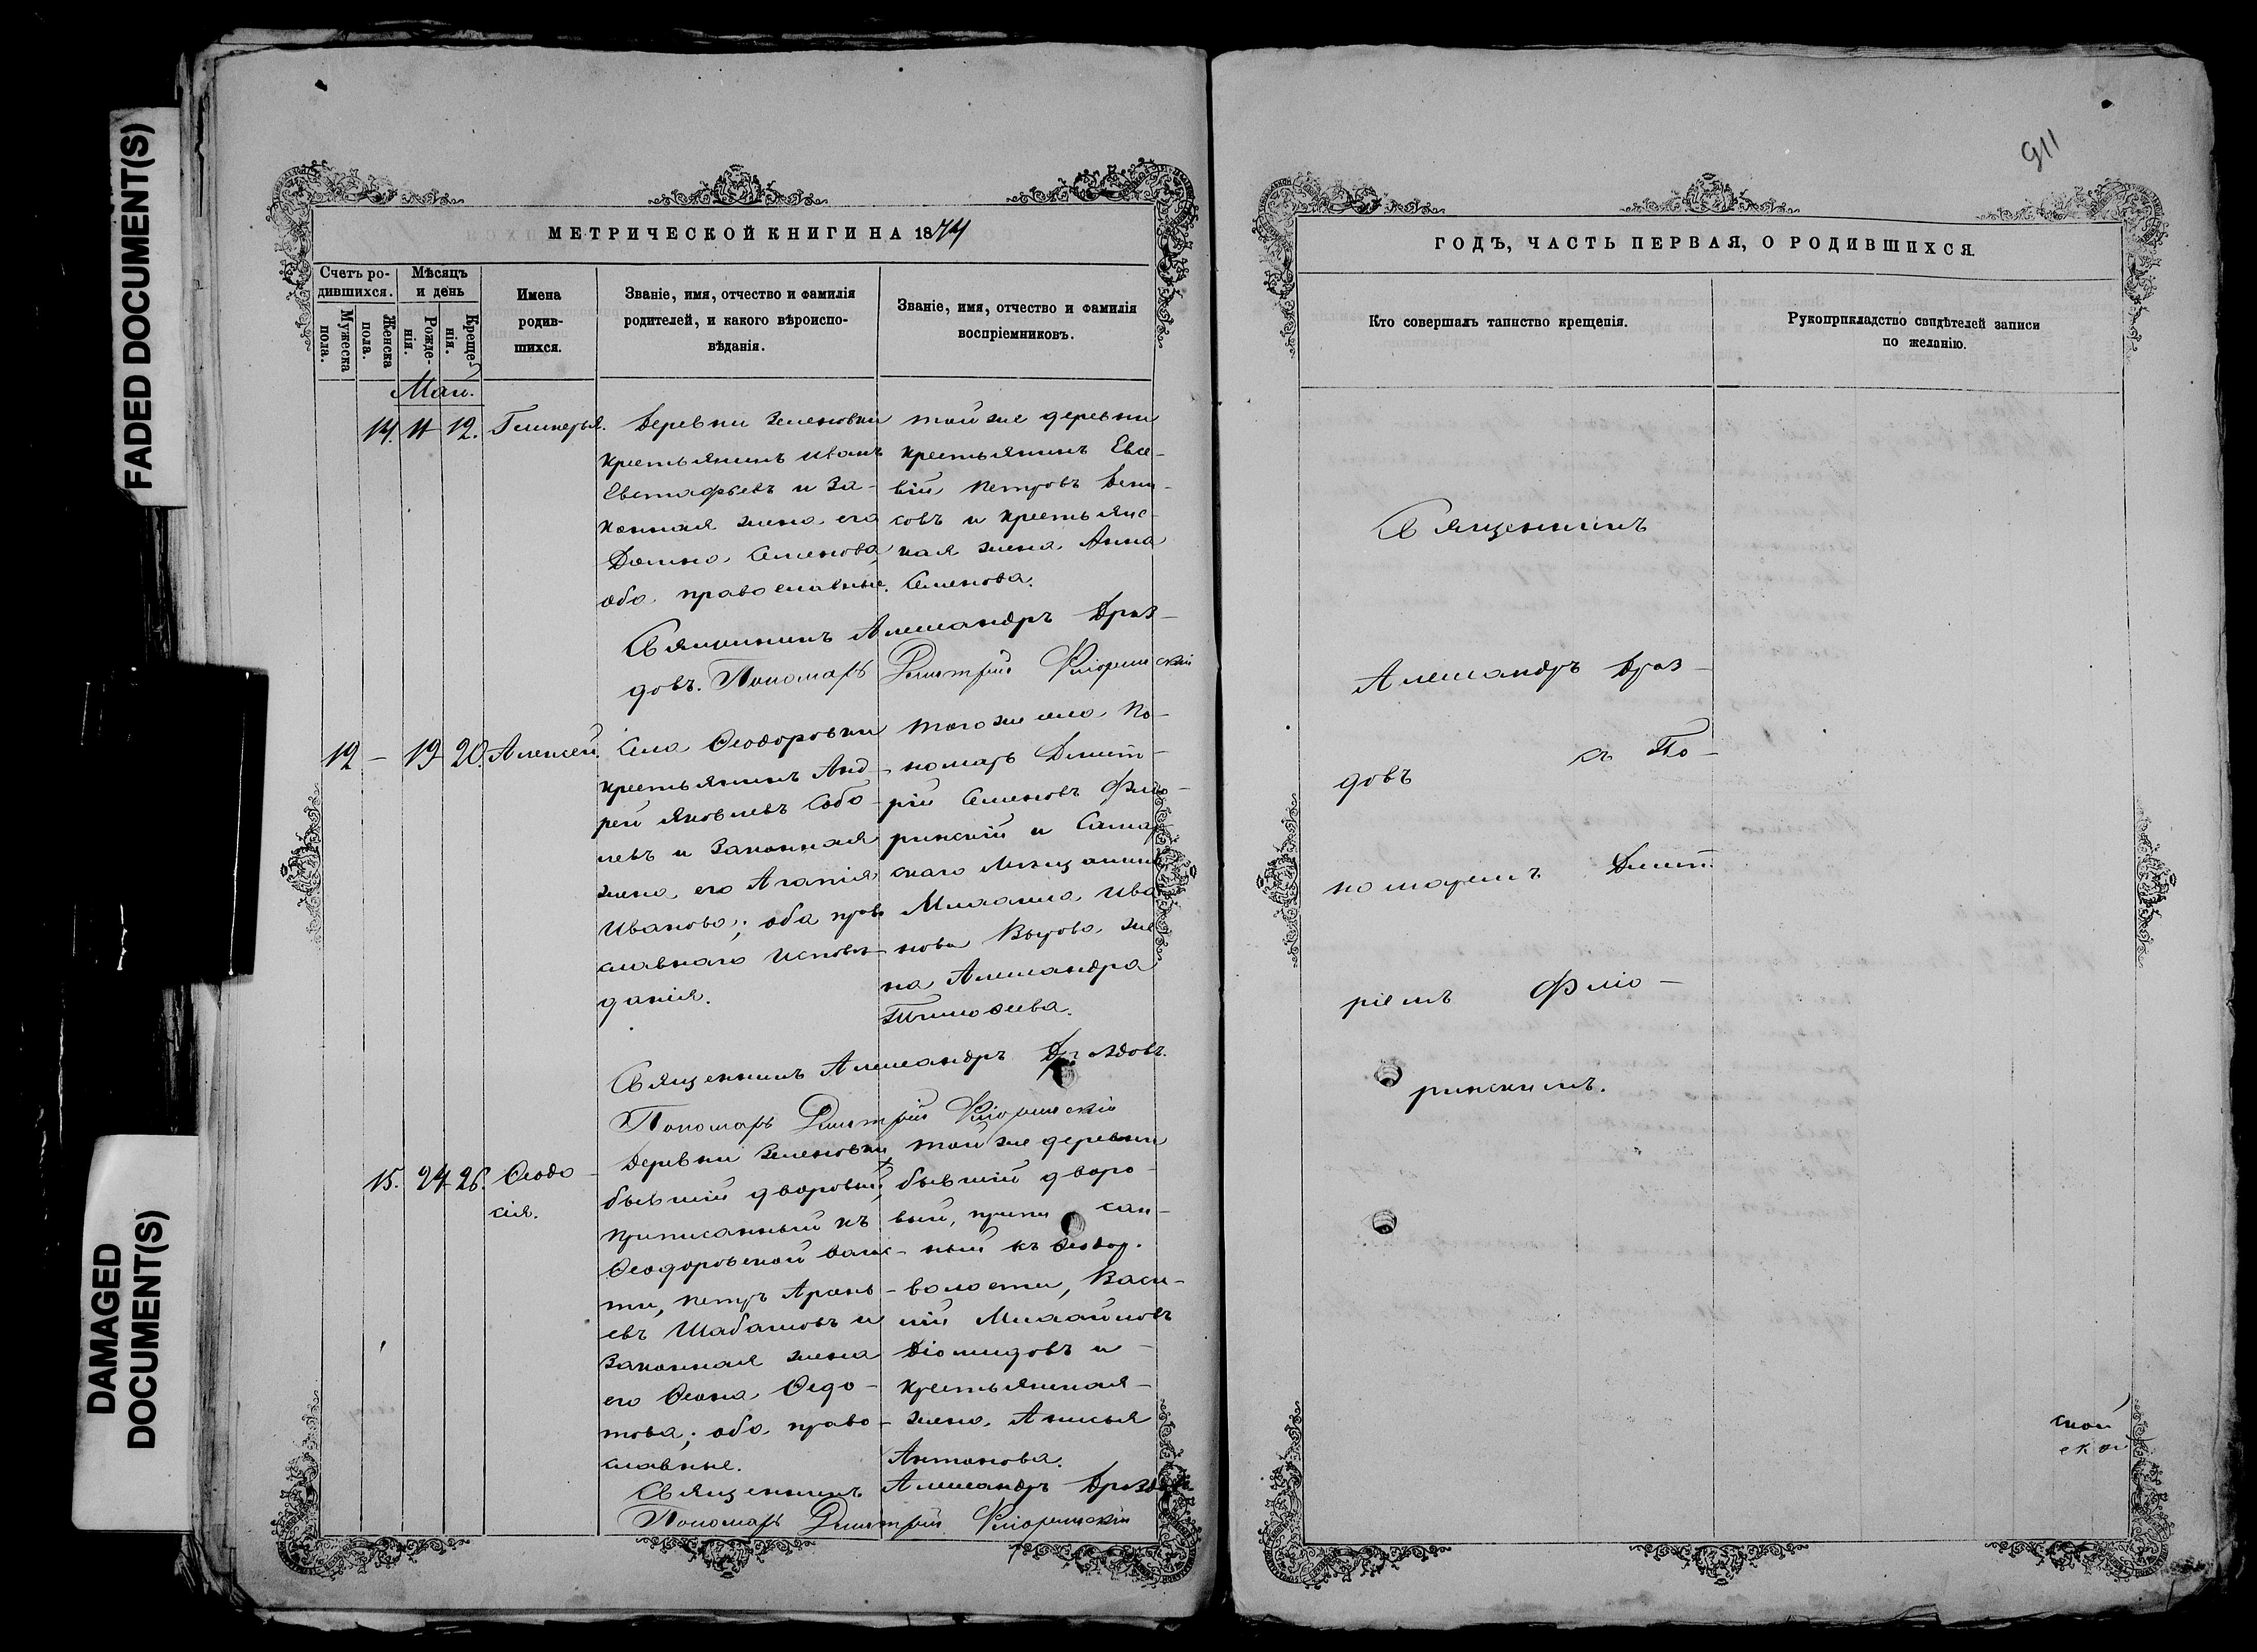 FADED DOCUMENT(S)
DAMAGED
DOCUMENT(S)
МЕТРИЧЕСКОЙ КНИГИ НА 1874
Счетъ ро-
дившихся.
Мужеска
пола.
Женска
пола.
Мѣсяцъ
и день
Рожде-
нія.
Креще-
нія.
Имена
родив-
шихся.
Званіе, имя, отчество и фамилія
родителей, и какого вѣроиспо-
вѣданія.
Званіе, имя, отчество и фамилія
воспріемниковъ.
Май.
14. 11 12. Гликерья.
Деревни Зеленовки
крестьянинъ Иванъ
Евстафьевъ и за-
конная жена его
Домна Семенова,
оба православные.
той же деревни
крестьянинъ Евсе-
вій Петровъ Дени-
совъ и крестьянс-
кая жена Анна
Семенова.
Священникъ Александръ Дроз-
довъ. Пономарь Димитрій Флоринскій
12 - 19 20. Алексей.
Села Ѳеодоровки
крестьянинъ Анд-
рей Яковлевъ Собо-
левъ и законная
жена его Агапія
Иванова; оба прав-
славнаго исповѣ-
данія.
того же села по-
номарь Димит-
рій Семеновъ Фло-
ринскій и Самар-
скаго мѣщанина
Михаила Ива
нова жена
на Александра
Тимоѳеева.
Священникъ Александръ Дроздовъ.
Пономарь Димитрій Флоринскій
15. 24 26. Ѳеодо-
сія.
Деревни Зеленовки
бывшій дворовый,
приписанный къ
Ѳеодоровской волос-
ти, Петръ
евъ Шабашовъ и
законная жена
его Ѳеона Ѳедо-
това; оба право-
славные.
той же деревни
бывшій дворо-
вый, припи сан-
ный къ Ѳеодор.
волости, Васи-
лій Михайловъ
Діомидовъ и
крестьянская
жена Анисья
Антонова.
Священникъ Александръ Дроздовъ
Пономарь Димитрій Флоринскій
911
ГОДЪ, ЧАСТЬ ПЕРВАЯ, О РОДИВШИХСЯ.
Кто совершалъ таинство крещенія.
Рукоприкладство свидѣтелей записи
по желанію.
Священникъ
Александръ Дроз-
довъ съ По-
номаремъ Димит
ріемъ Фло-
ринскимъ.
ской
ской